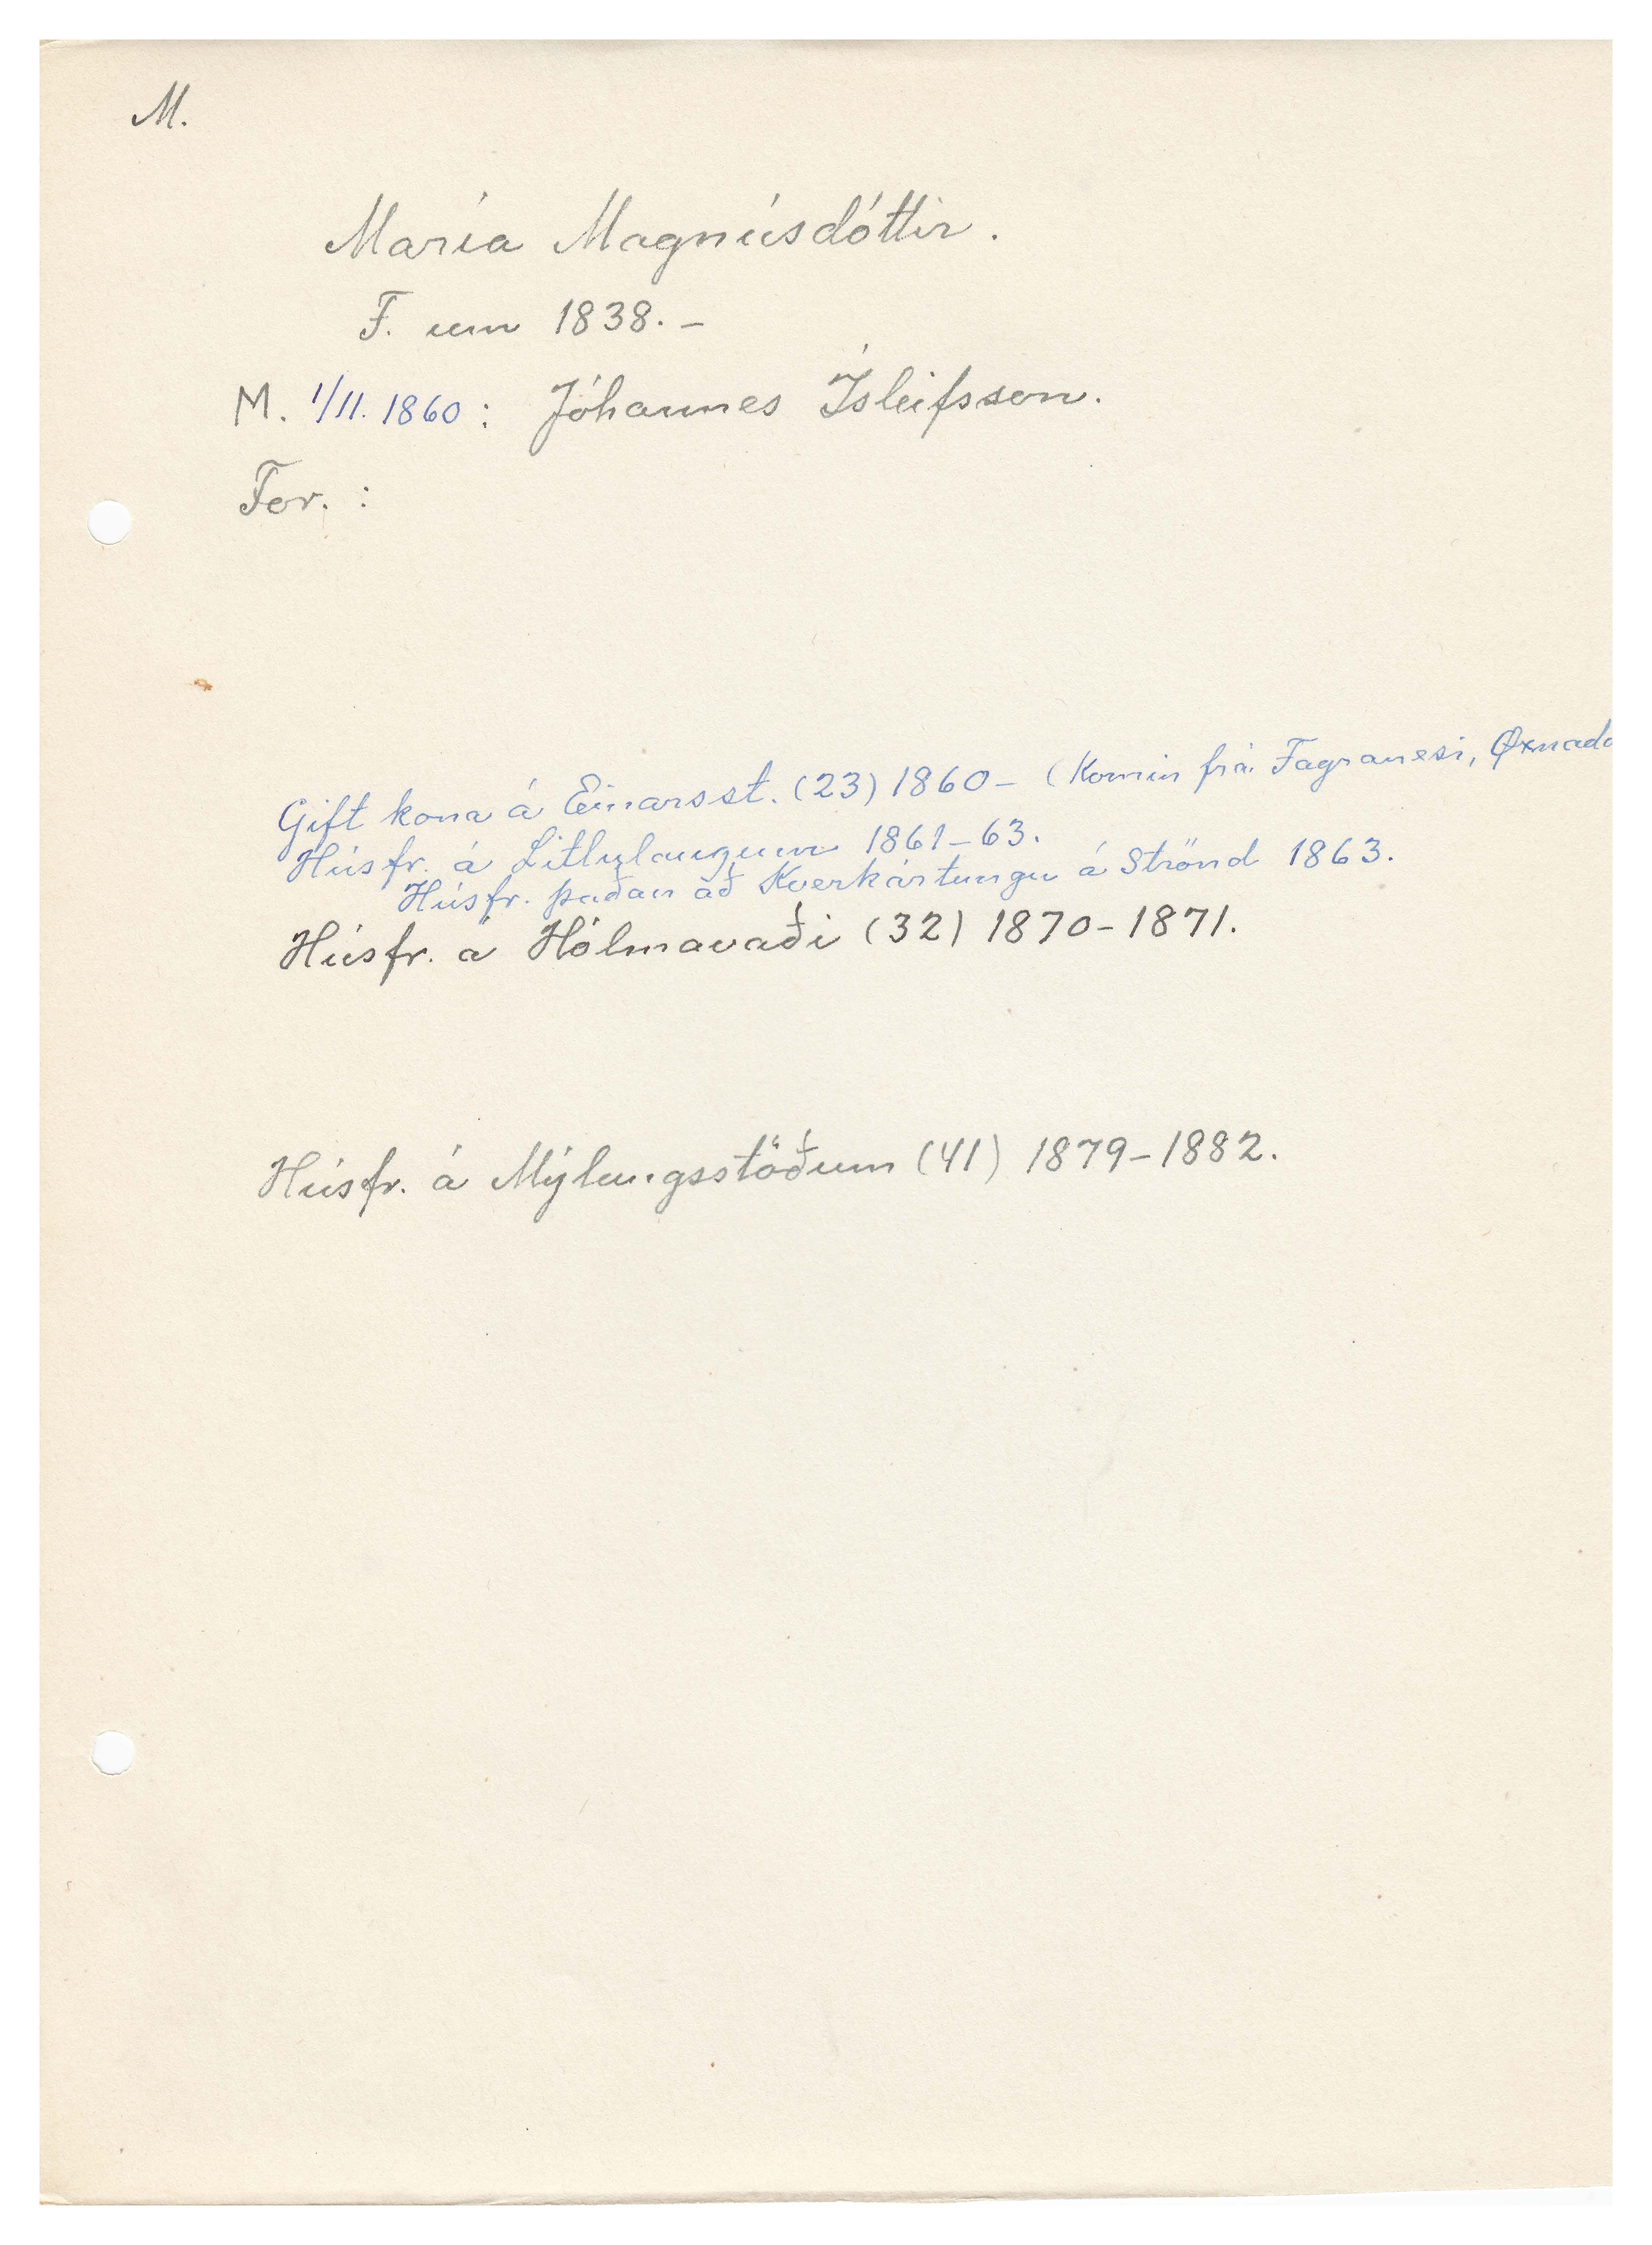 M.
María Magnúsdóttir.
F. um 1838. –
M. 1/11. 1860 : Jóhannes Ísleifsson.
For. :
Gift kona á Einarsst. (23) 1860 – (Komin frá Fagranesi, Øxnada
Húsfr. á Litlulaugum 1861–63.
Húsfr. þaðan að Kverkártungu á Strönd 1863.
Húsfr. á Hólmavaði (32) 1870–1871.
Húsfr. á Mýlaugsstöðum (41) 1879–1882.